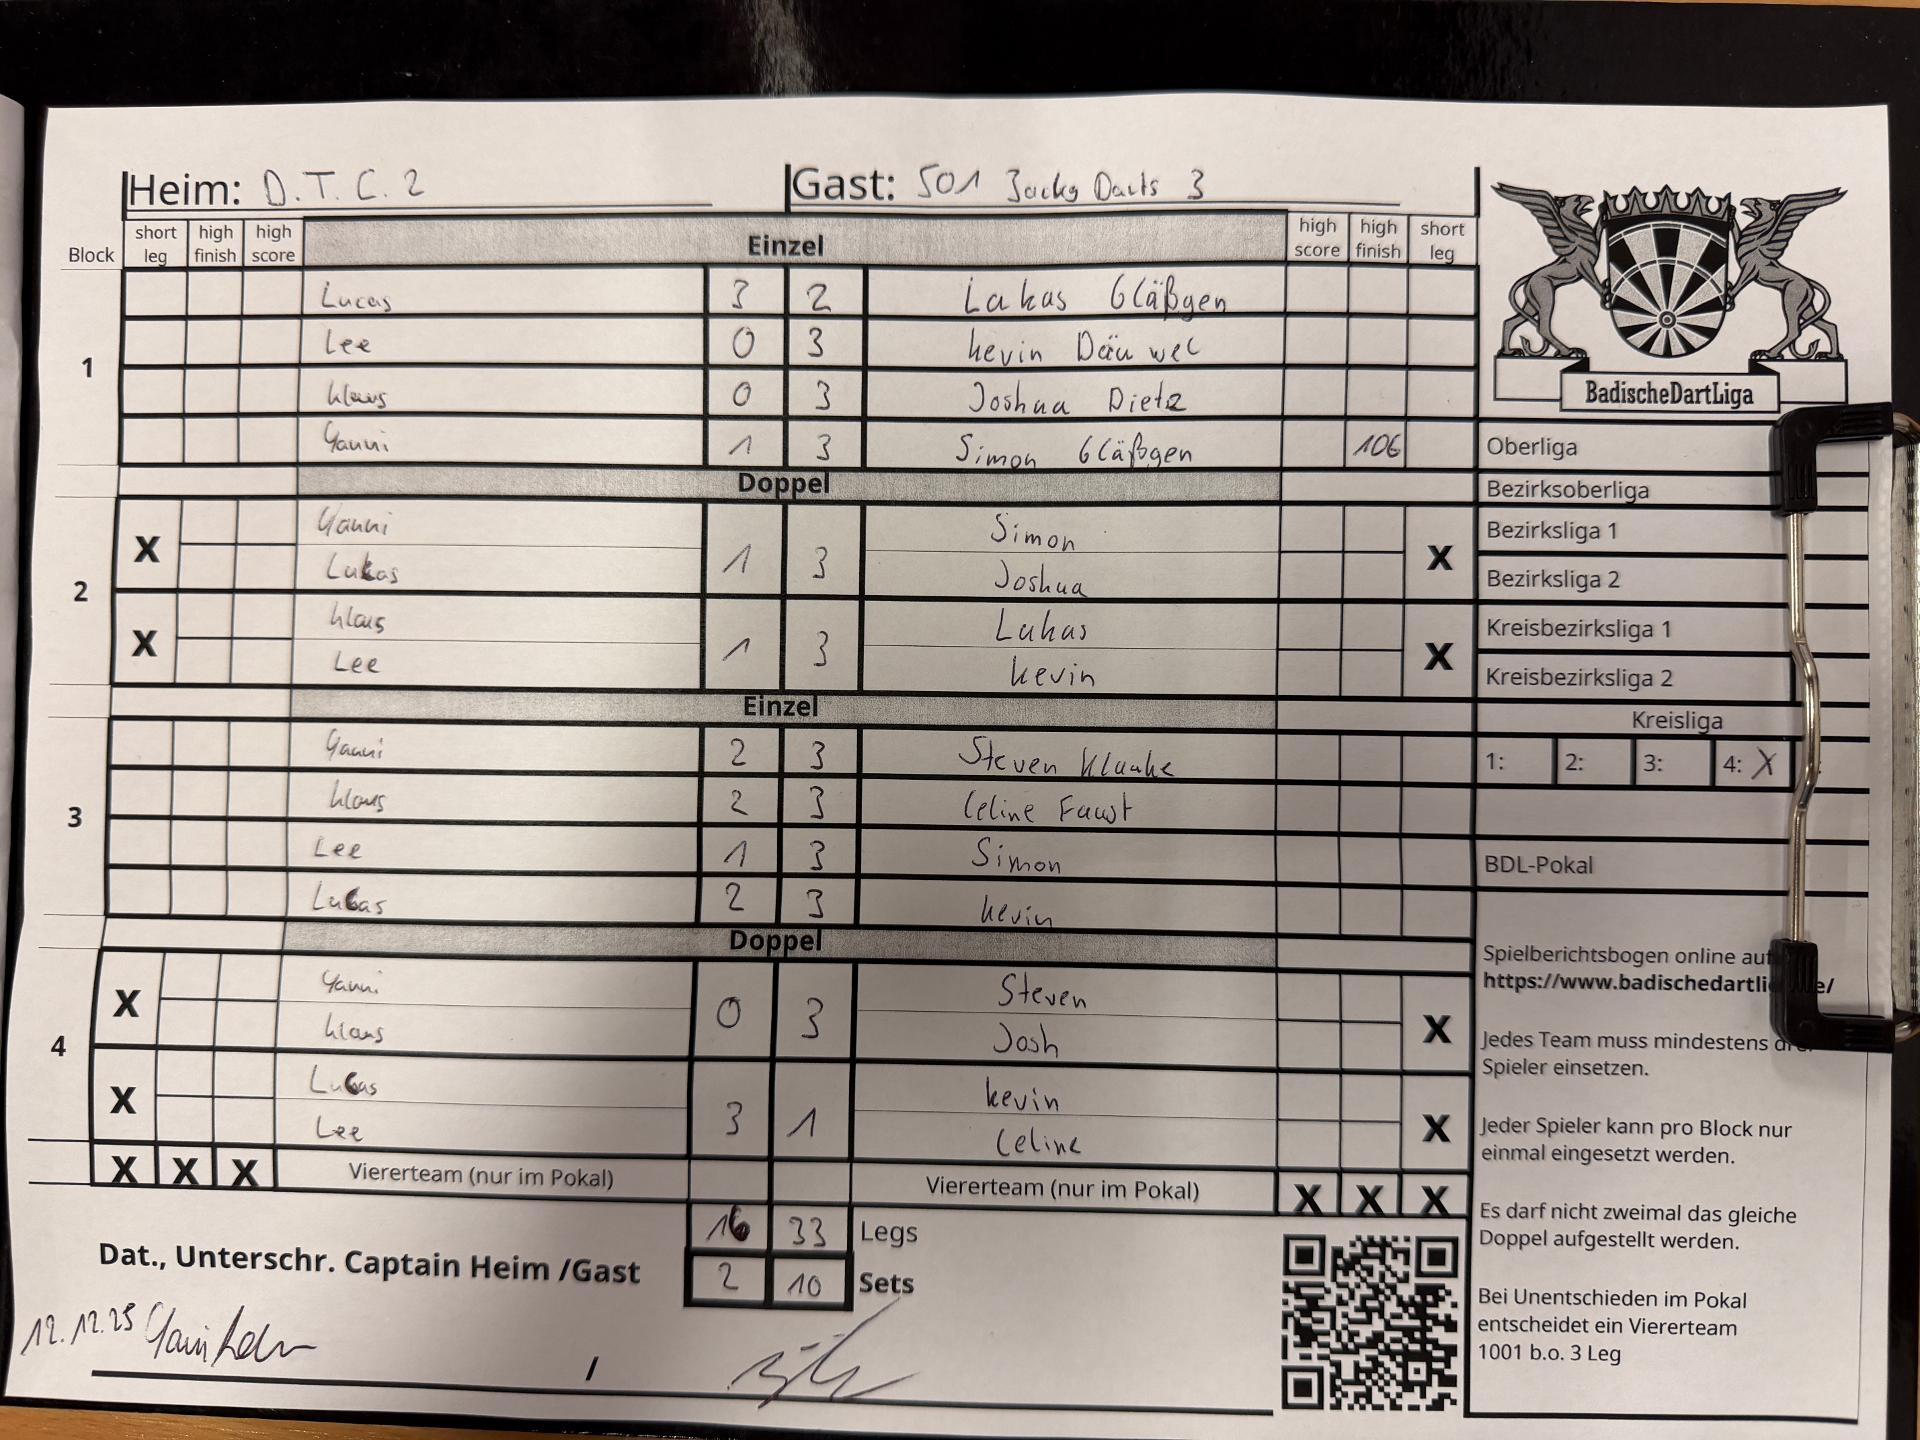 Heim: D.T.C. 2 Gast: 501 Jacky Darts 3
Block short leg high finish high score Einzel high score high finish short leg
1
Lucas 3 2 Lukas Gläßgen
Lee 0 3 Kevin Däuwel
Klaus 0 3 Joshua Dietz
Yanni 1 3 Simon Gläßgen 106
Doppel
2
X Yanni 1 3 Simon X
Lukas Joshua
X Klaus 1 3 Lukas X
Lee Kevin
Einzel
3
Yanni 2 3 Steven
Klaus 2 3 Celine Faust
Lee 1 3 Simon
Lucas 2 3 Kevin
Doppel
4
X Yanni 0 3 Steven X
Klaus Josh
X Lucas 3 1 Kevin X
Lee Celine
X X X Viererteam (nur im Pokal) Viererteam (nur im Pokal) X X X
16 33 Legs
2 10 Sets
Dat., Unterschr. Captain Heim /Gast
12.12.25
/
BadischeDartLiga
Oberliga
Bezirksoberliga
Bezirksliga 1
Bezirksliga 2
Kreisbezirksliga 1
Kreisbezirksliga 2
Kreisliga
1: 2: 3: 4: X
BDL-Pokal
Spielberichtsbogen online auf
https://www.badischedartli e/
Jedes Team muss mindestens
Spieler einsetzen.
Jeder Spieler kann pro Block nur
einmal eingesetzt werden.
Es darf nicht zweimal das gleiche
Doppel aufgestellt werden.
Bei Unentschieden im Pokal
entscheidet ein Viererteam
1001 b.o. 3 Leg